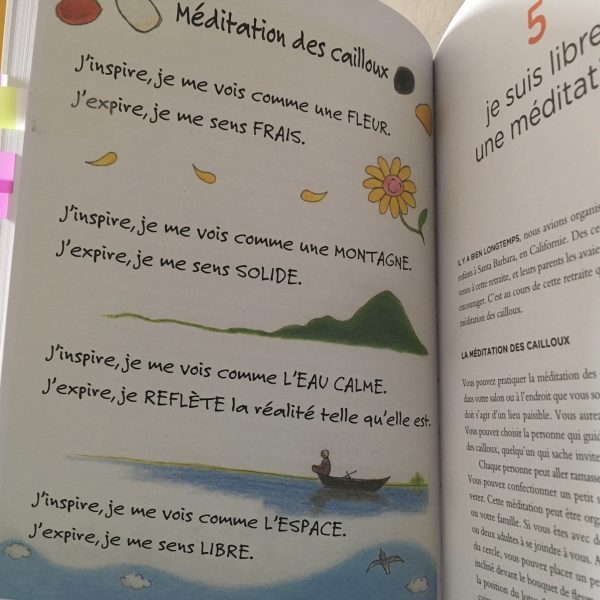 Méditation des cailloux
J'inspire, je me vois comme une FLEUR.
J'expire, je me sens FRAIS.
J'inspire, je me vois comme une MONTAGNE.
J'expire, je me sens SOLIDE.
J'inspire, je me vois comme L'EAU CALME.
J'expire, je REFLÈTE la réalité telle qu'elle est.
J'inspire, je me vois comme L'ESPACE.
J'expire, je me sens LIBRE.
5
je suis libre
une méditati
IL Y A BIEN LONGTEMPS, nous avions organis
enfants à Santa Barbara, en Californie. Des ce
venus à cette retraite, et leurs parents les avaie
encourager. C'est au cours de cette retraite q
méditation des cailloux.
LA MÉDITATION DES CAILLOUX
Vous pouvez pratiquer la méditation des
dans votre salon ou à l'endroit que vous so
doit s'agir d'un lieu paisible. Vous aurez
Vous pouvez choisir la personne qui guid
des cailloux, quelqu'un qui sache invite
Chaque personne peut aller ramasse
Vous pouvez confectionner un petit s
verez. Cette méditation peut être orga
ou votre famille. Si vous êtes avec de
ou deux adultes à se joindre à vous. A
du cercle, vous pouvez placer un pe
incliné devant le bouquet de fleurs
la position du